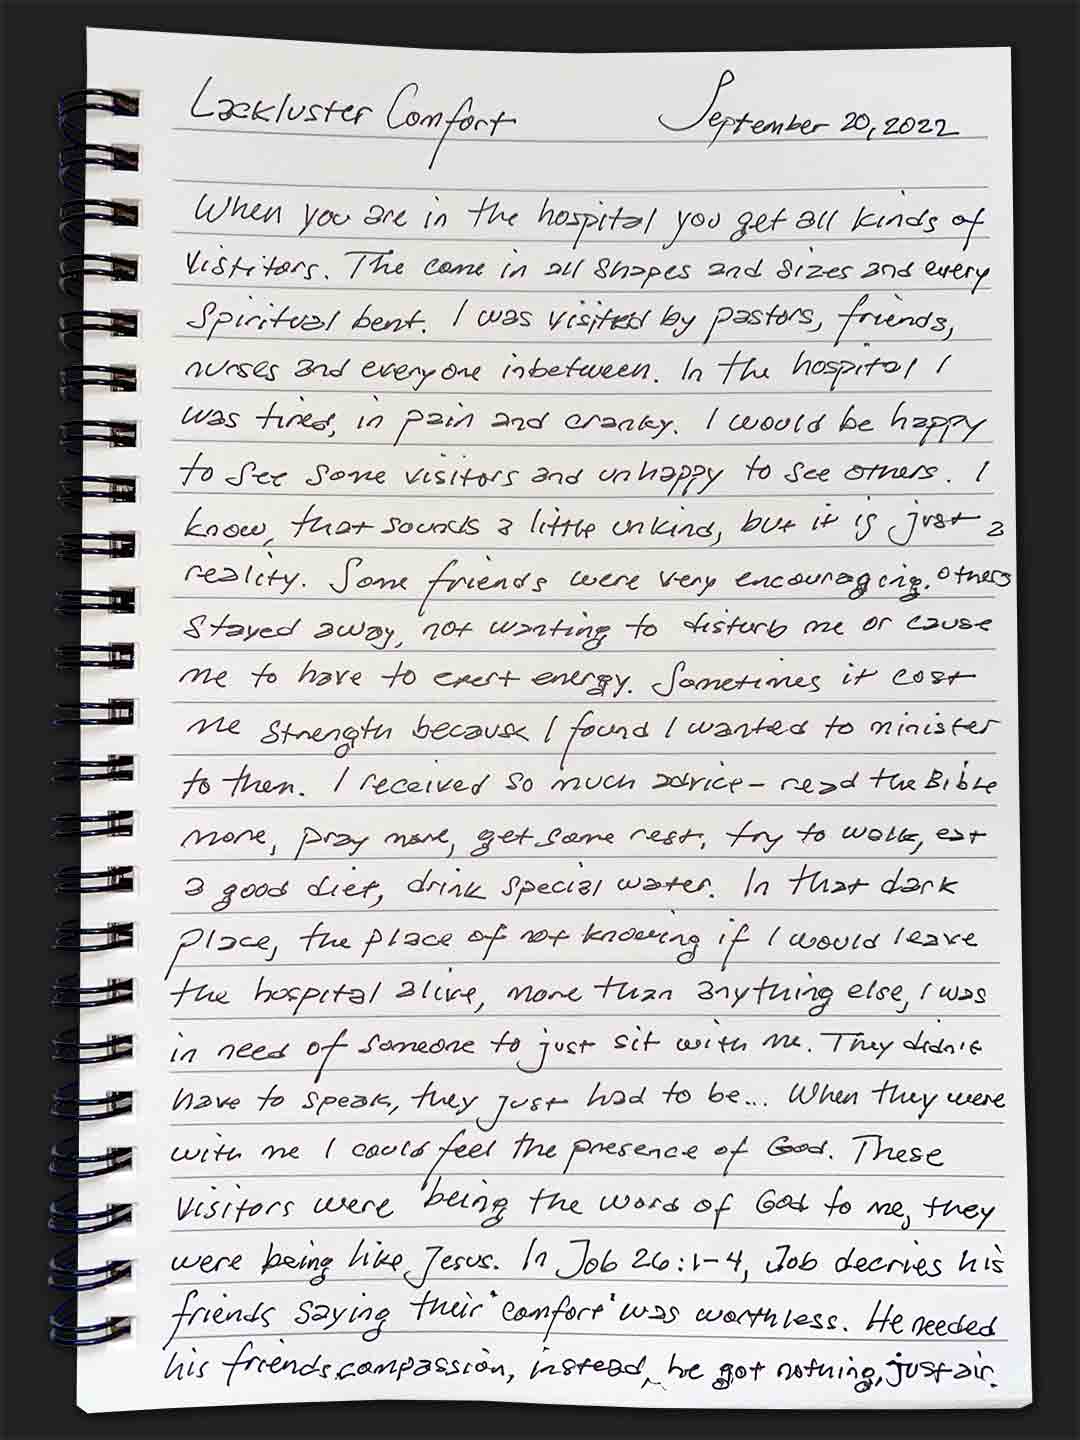 Lackluster Comfort September 20, 2022
When you are in the hospital you get all kinds of
Vistitors. The come in all shapes and sizes and every
Spiritual bent. I was visited by pastors, friends,
nurses and everyone inbetween. In the hospital I
was tired, in pain and cranky. I would be happy
to see some visitors and unhappy to see others. I
know, that sounds a little unkind, but it is just a
reality. Some friends were very encouraging. Others
Stayed away, not wanting to disturb me or cause
me to have to exert energy. Sometimes it cost
me strength because I found I wanted to minister
to them. I received so much advice - read the Bible
more, pray more, get some rest, try to walk, eat
a good diet, drink special water. In that dark
place, the place of not knowing if I would leave
the hospital alive, more than anything else, I was
in need of someone to just sit with me. They didn't
have to speak, they just had to be... When they were
with me I could feel the presence of God. These
Visitors were being the word of God to me, they
were being like Jesus. In Job 26:1-4, Job decries his
friends saying their "comfort" was worthless. He needed
his friends compassion, instead, he got nothing, just air.